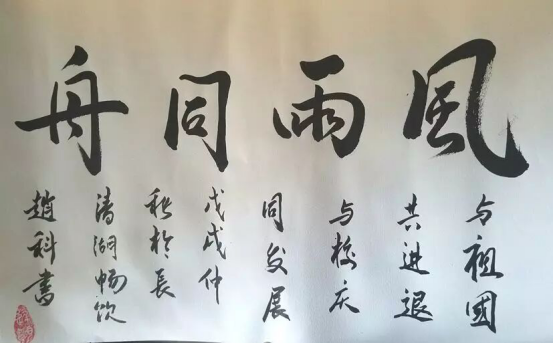 風雨同舟
与祖國
共进退
与校庆
同发展
戊戌仲
秋於長
清湖畅饮
趙科書